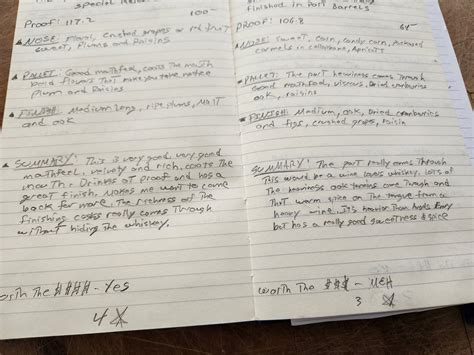 special Rele
Proof: 117.2 100-
NOSE: Floral, crushed grapes or
sweet, Plums and Raisins
PALLET: Good mouthfeel, coats the mouth
bold flavors that make you take notice
Plum and Raisins
FINISH: Medium long, ripe plums, Malt
and oak
SUMMARY: This is very good, very good
mouthfeel, velvety and rich, coats the
mouth. Drinks at proof and has a
great finish, makes me want to come
back for more. The richness of the
finishing casks really comes through
without hiding the whiskey.
worth the $$$$ - Yes
4 ☆
finished in Port Barrels
PROOF: 106.8 65-
NOSE: Sweet, corn, candy corn,
carmels in cellophane, Apricots
PALLET: The port heaviness comes through
Good mouthfeel, viscous, Dried cranburies
oak, raisins
FINISH: Medium, oak, Dried cranburies
and figs, crushed grapes, Raisin
SUMMARY: The port really comes through
This would be a wine lovers whiskey, lots of
the heaviness oak tannins come through and
that warm spice on the tongue from a
heavy wine. It's heavier than Angels Envy
but has a really good sweetness & spice
worth the $$$ - MEH
3 ☆